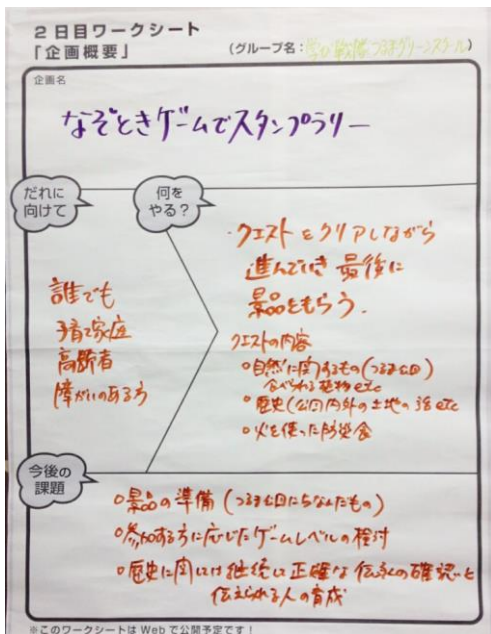 2日目ワークシート
「企画概要」
(グループ名:学び戦隊つるまグリーンスクール)
企画名
なぞときゲームでスタンプラリー
だれに
向けて
誰でも
子育て家庭
高齢者
障がいのある方
何を
やる?
・クエストをクリアしながら
進んでいき 最後に
景品をもらう.
クエストの内容
○自然に関するもの(つるま公園)
食べられる植物etc
○歴史(公園内外の土地の 話etc
○火を使った防災食
今後の
課題
○景品の準備(つるま公園にちなんだもの)
○参加する方に応じたゲームレベルの検討
○歴史に関しては継続して正確な伝承の確認と
伝えられる人の育成
※このワークシートはWebで公開予定です!